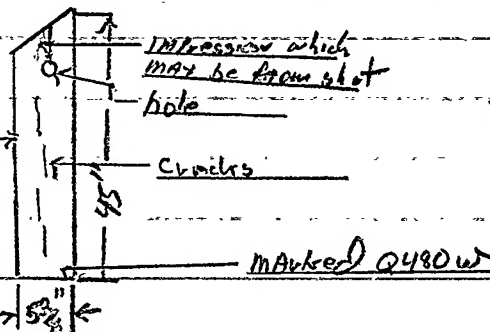 Impression which
may be from shot
hole
Cracks
45"
Marked Q480 W
5¾"